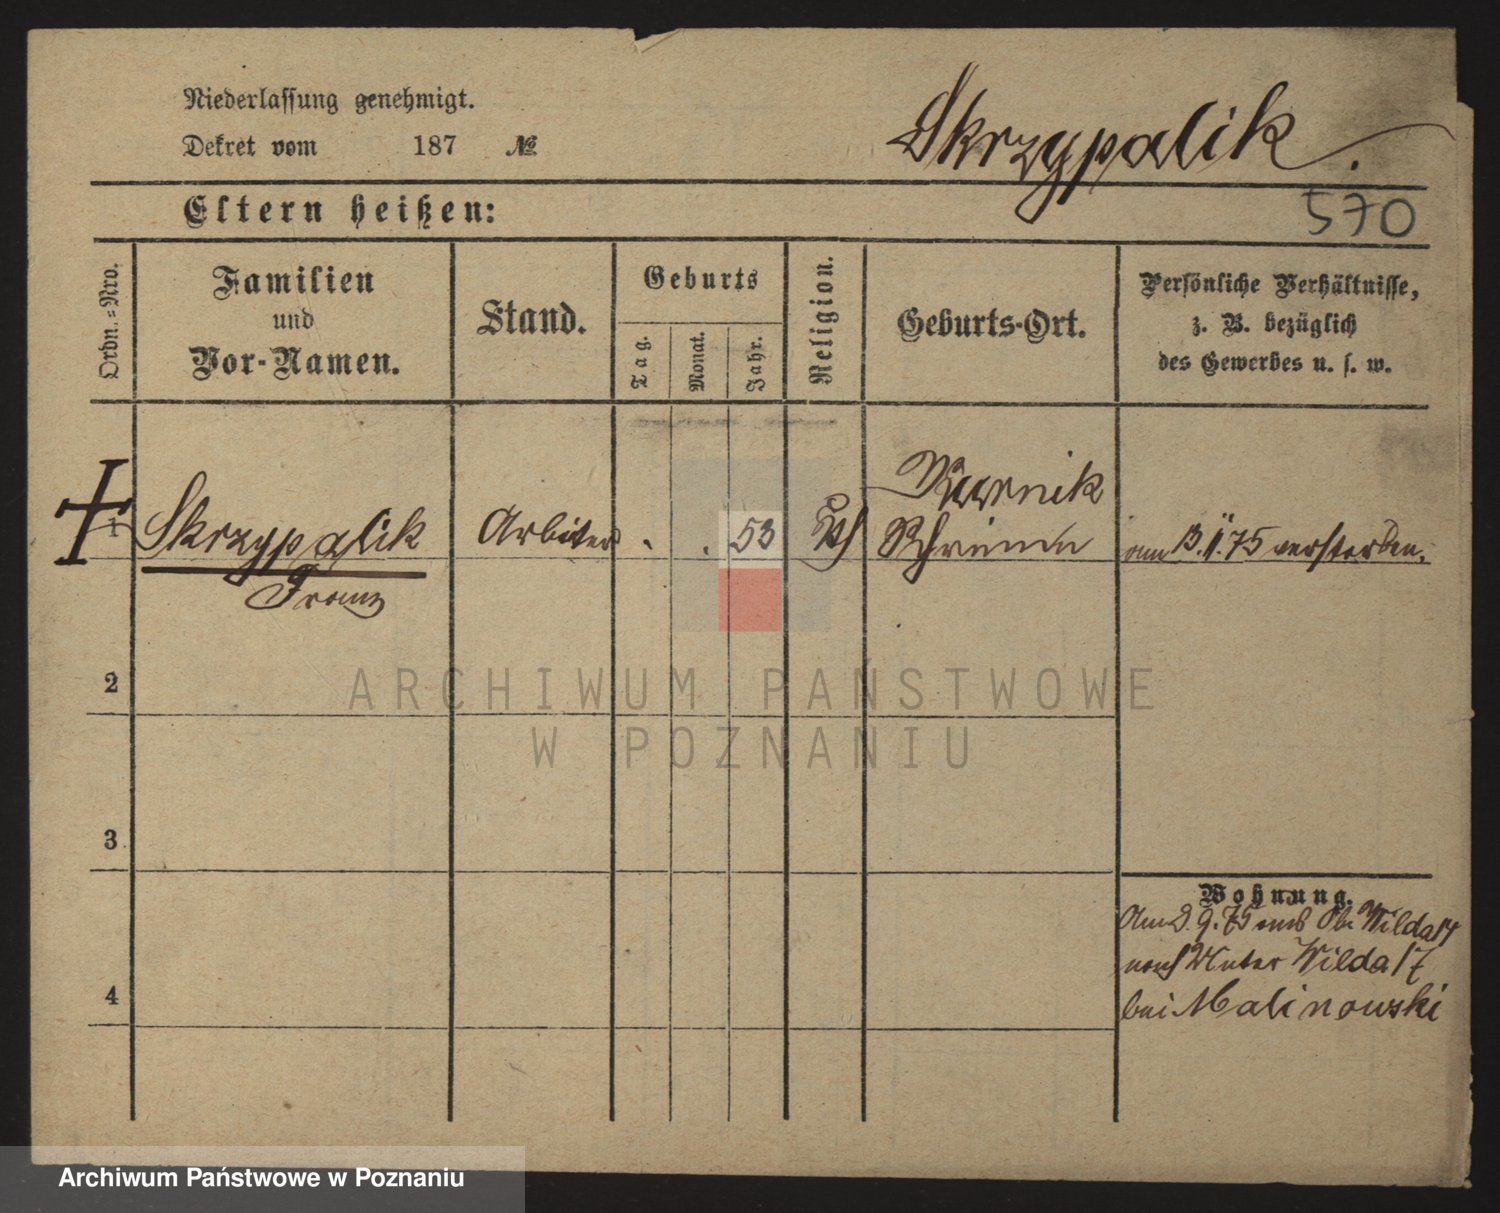 Niederlassung genehmigt.
Dekret vom 187 №
Skrzypalik.
Eltern heißen:
570
Ordn.=Nro.
Familien
und
Vor-Namen.
Stand.
Geburts
Tag.
Monat.
Jahr.
Religion.
Geburts-Ort.
Persönliche Verhältnisse,
z. B. bezüglich
des Gewerbes u. s. w.
1 Skrzypalik Arbeiter . . 53 Kth
Franz
Schrimm
am 13. 11. 75 verstorben.
2
3
4
Wohnung.
Am 2. 9. 75 Wilda 14
nach Unter Wilda 17
bei Malinowski
ARCHIWUM PAŃSTWOWE
W POZNANIU
Archiwum Państwowe w Poznaniu